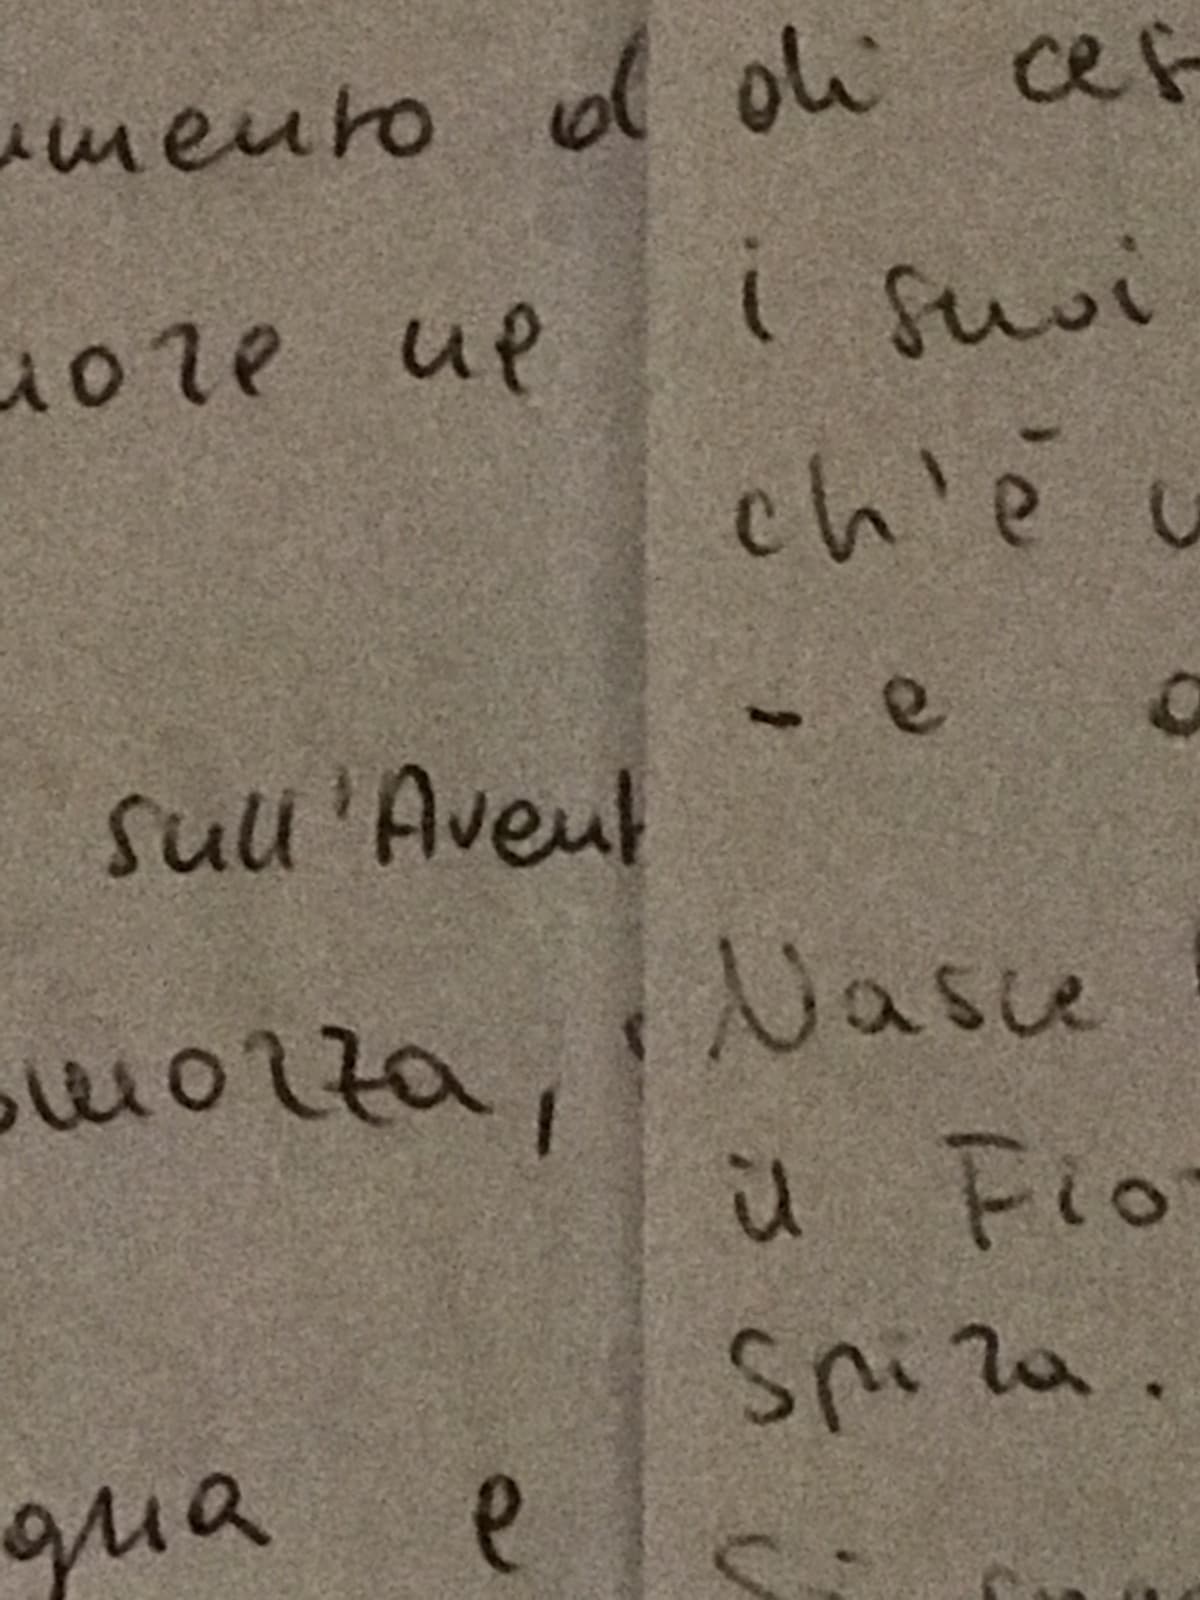 umento d
uore ne
sull'Avent
smorza,
qua e
di ces
i suoi
ch'è u
- e o
Nasce
il Fior
spira.
Si